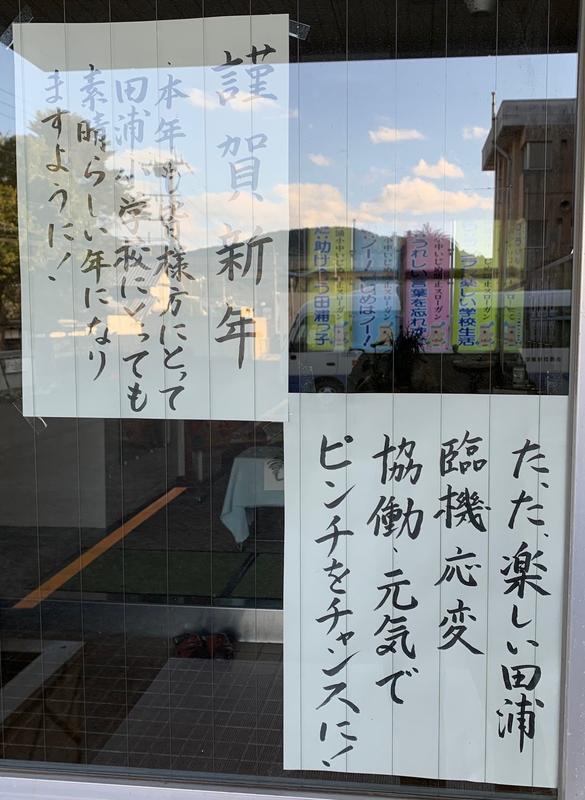 謹賀新年
・本年も皆様方にとって
田浦小学校にとっても
素晴らしい年になり
ますように!
楽しい学校生活
うれしい言葉を忘れ
ノー!いじめはノー!
助け合う田浦っ子
た、た、楽しい田浦
臨機応変
協働、元気で
ピンチをチャンスに!